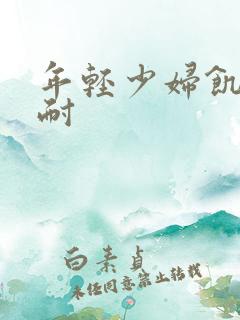 年輕少婦飢
耐
白素貞
未经同意禁止转载